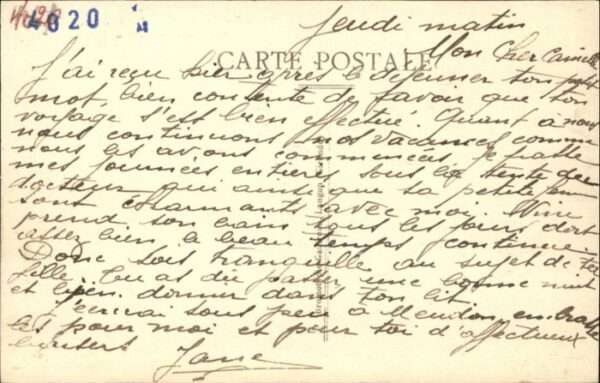 4020
Jeudi matin
Mon Cher Camille
CARTE POSTALE
J'ai reçu hier après le déjeuner ton petit
mot, bien contente de savoir que ton
voyage s'est bien effectué. Quant à nous
nous continuons nos vacances comme
nous les avons commencées, je passe
mes journées entières sous la tente du
docteur qui ainsi que sa petite
sont charmants avec moi.
prend son bain tous les jours dort
assez bien le beau temps continue.
Donc sois tranquille au sujet de ta
fille. Tu as dû passer une bonne nuit
et bien dormir dans ton lit.
J'écrirai sous peu à Meudon, embrasse
les pour moi et pour toi d'affectueux
baisers Jane